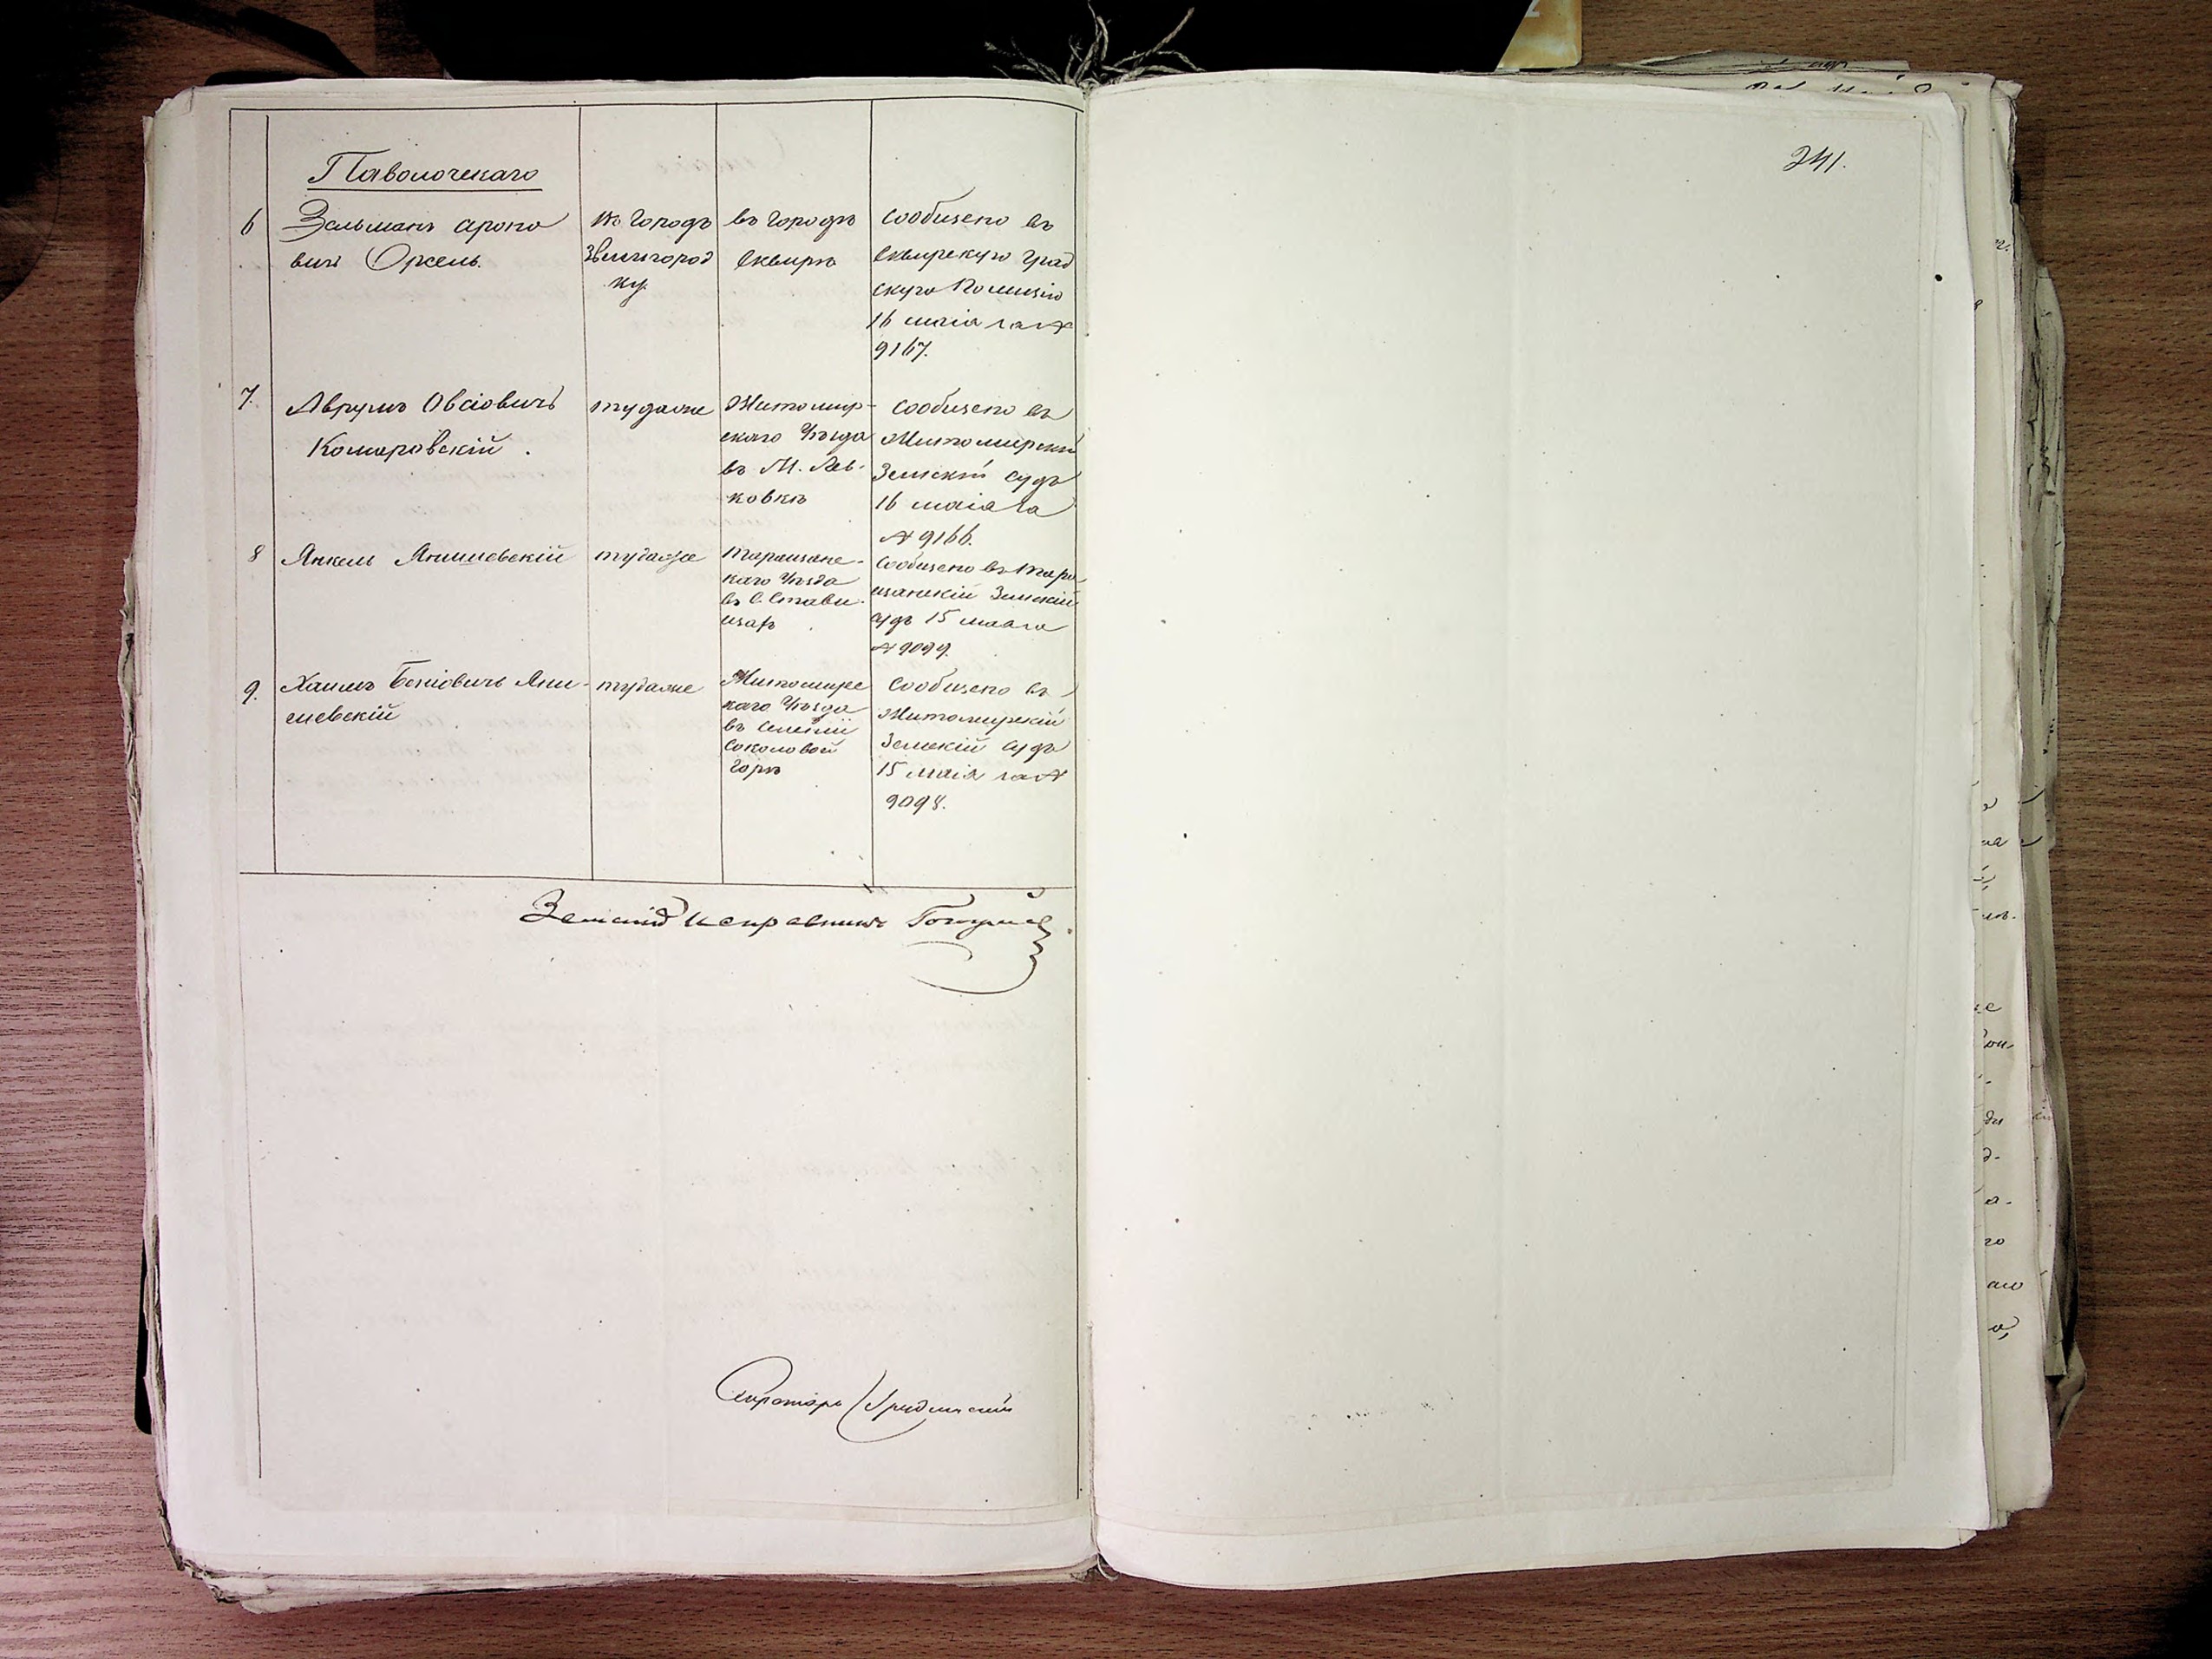 241.
Паволочскаго
6 Зельманъ Ароно
вичъ Орсель.
въ городъ
Звенигород
ку.
въ городѣ
Сквирѣ
сообщено въ
Сквирскую град
скую Полицію
16 маія за №
9167.
7. Аврумъ Овсіовичъ
Комаровскій.
тудаже
Житомир-
скаго Уѣзда
въ М. Лев-
ковкѣ
сообщено въ
Житомирскій
Земскій судъ
16 маія за
№ 9166.
8 Янкель Янишевскій
тудаже
Таращанс-
каго Уѣзда
въ С. Стави-
щахъ
сообщено въ Тара
щанскій Земскій
судъ 15 маія за
№ 9099.
9. Хаимъ Беніовичъ Яни-
шевскій
тудаже
Житомирс
каго Уѣзда
въ селеніи
Соколовой
горѣ
сообщено въ
Житомирскій
Земскій судъ
15 маія за №
9098.
Земскій Исправникъ
Секретарь